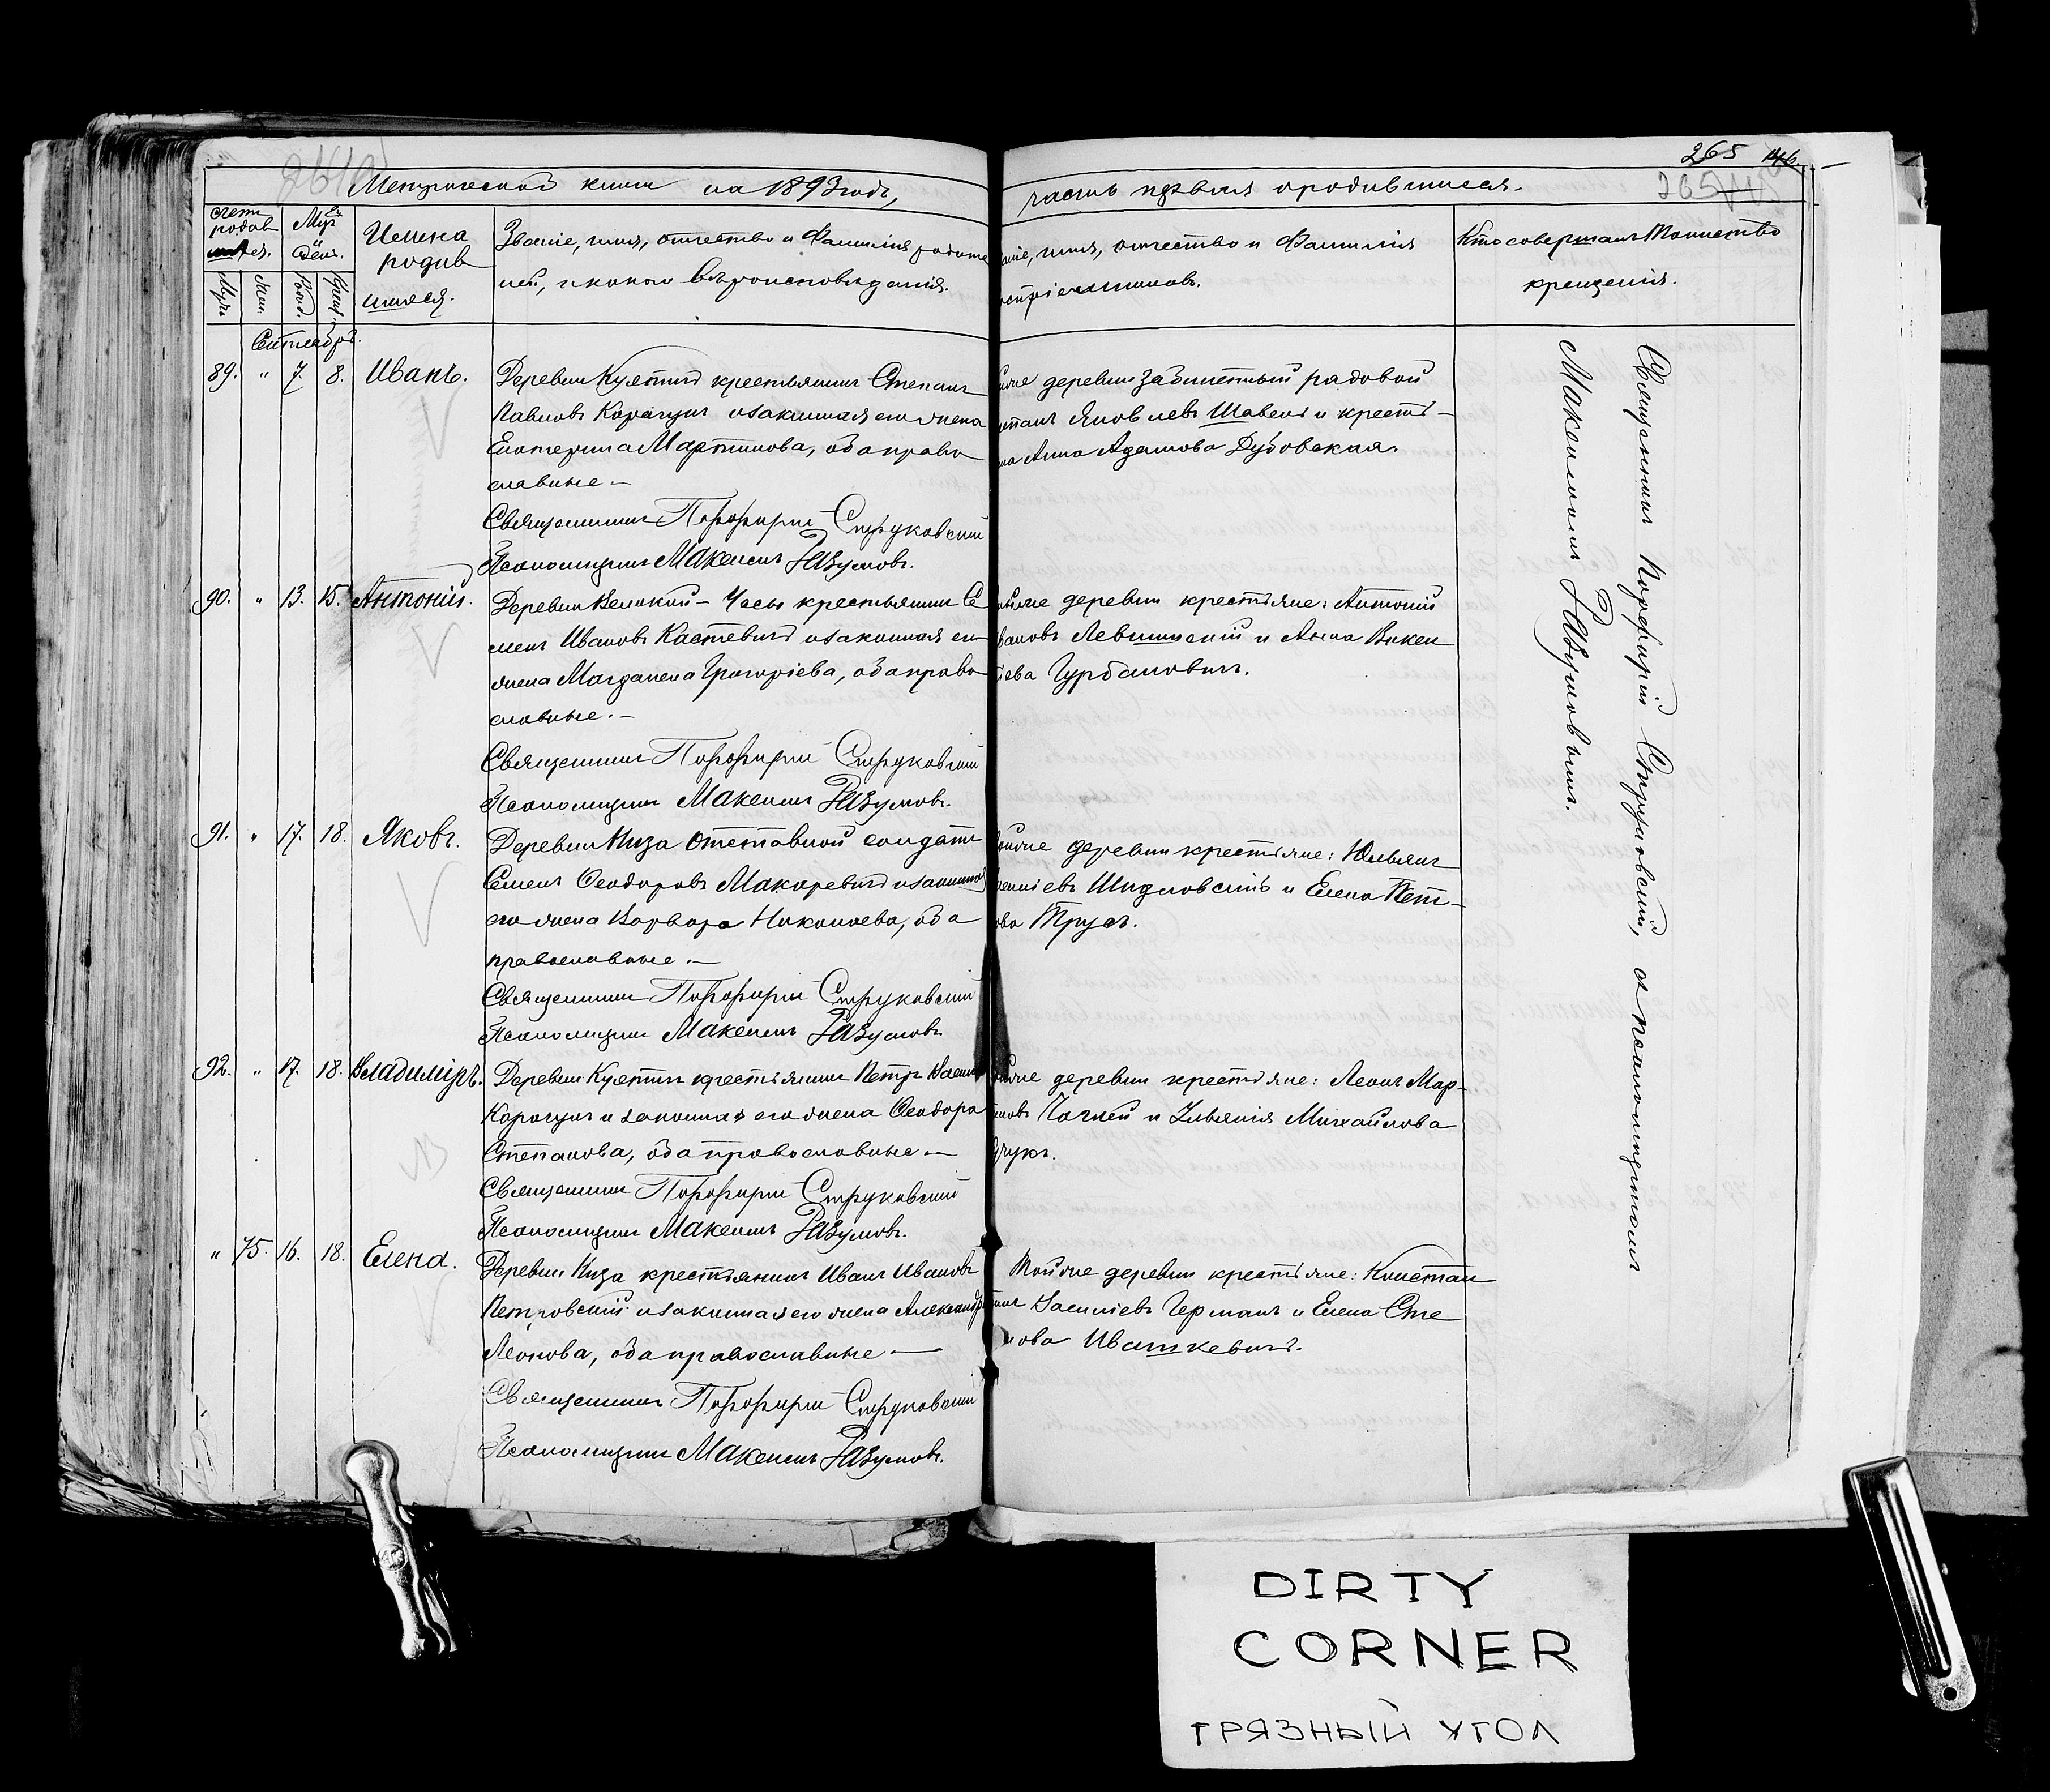 265 146.
Метрической книги на 1893 годъ,
часть первая о родившихся.
Счетъ родившихся.
Мѣсяцъ и день.
Имена родившихся.
Званіе, имя, отчество и фамилія родителей, и какого вѣроисповѣданія.
аніе, имя, отчество и фамилія
воспріемниковъ.
Кто совершалъ Таинство
крещенія.
Муж.
Жен.
Рожд.
Крещ.
Сентябрь.
89. " 7. 8. Иванъ.
Деревни Куптичъ крестьянинъ Степанъ
Павловъ Карачунъ и законная его жена
Екатерина Мартинова, оба право
славные.–
Священникъ Порфирій Струковскій
Псаломщикъ Максимъ Разумовъ.
деревни запасный рядовой
Яковлевъ Шавель и кресть–
Анна Адамова Дубовская.
90. " 13. 15. Антоній.
Деревни Великой–Часы крестьянинъ Се
менъ Ивановъ Кастевичъ и законная его
жена Магдалена Григоріева, оба право
славные.–
Священникъ Порфирій Струковскій
Псаломщикъ Максимъ Разумовъ.
деревни крестьяне: Антоній
вановъ Левшинскій и Анна Викен
іева Гурбановичъ.
91. " 17. 18. Яковъ.
Деревни Низа отставной солдатъ
Семенъ Ѳеодоровъ Макаревичъ и законная
его жена Варвара Николаева, оба
православные.–
Священникъ Порфирій Струковскій
Псаломщикъ Максимъ Разумовъ
деревни крестьяне: Юльянъ
Шидловскій и Елена Пет–
ова Трусъ.
92. " 17. 18. Владиміръ.
Деревни Куптичъ крестьянинъ Петръ
Карачунъ и законная его жена Ѳеодора
Степанова, оба православные.–
Священникъ Порфирій Струковскій
Псаломщикъ Максимъ Разумовъ.
деревни крестьяне: Леонъ Мар–
новъ Чагней и Ульянія Михайлова
" 75. 16. 18. Елена.
Деревни Низа крестьянинъ Иванъ Ивановъ
Петровскій и законная его жена Александра
Леонова, оба православные –
Священникъ Порфирій Струковскій
Псаломщикъ Максимъ Разумовъ.
Тойже деревни крестьяне: Констан
тинъ Василіевъ Германъ и Елена Сте
нова Ивашкевичъ.
Священникъ Порфирій Струковскій, съ псаломщикомъ
Максимомъ Разумовымъ.
DIRTY
CORNER
ГРЯЗНЫЙ УГОЛ